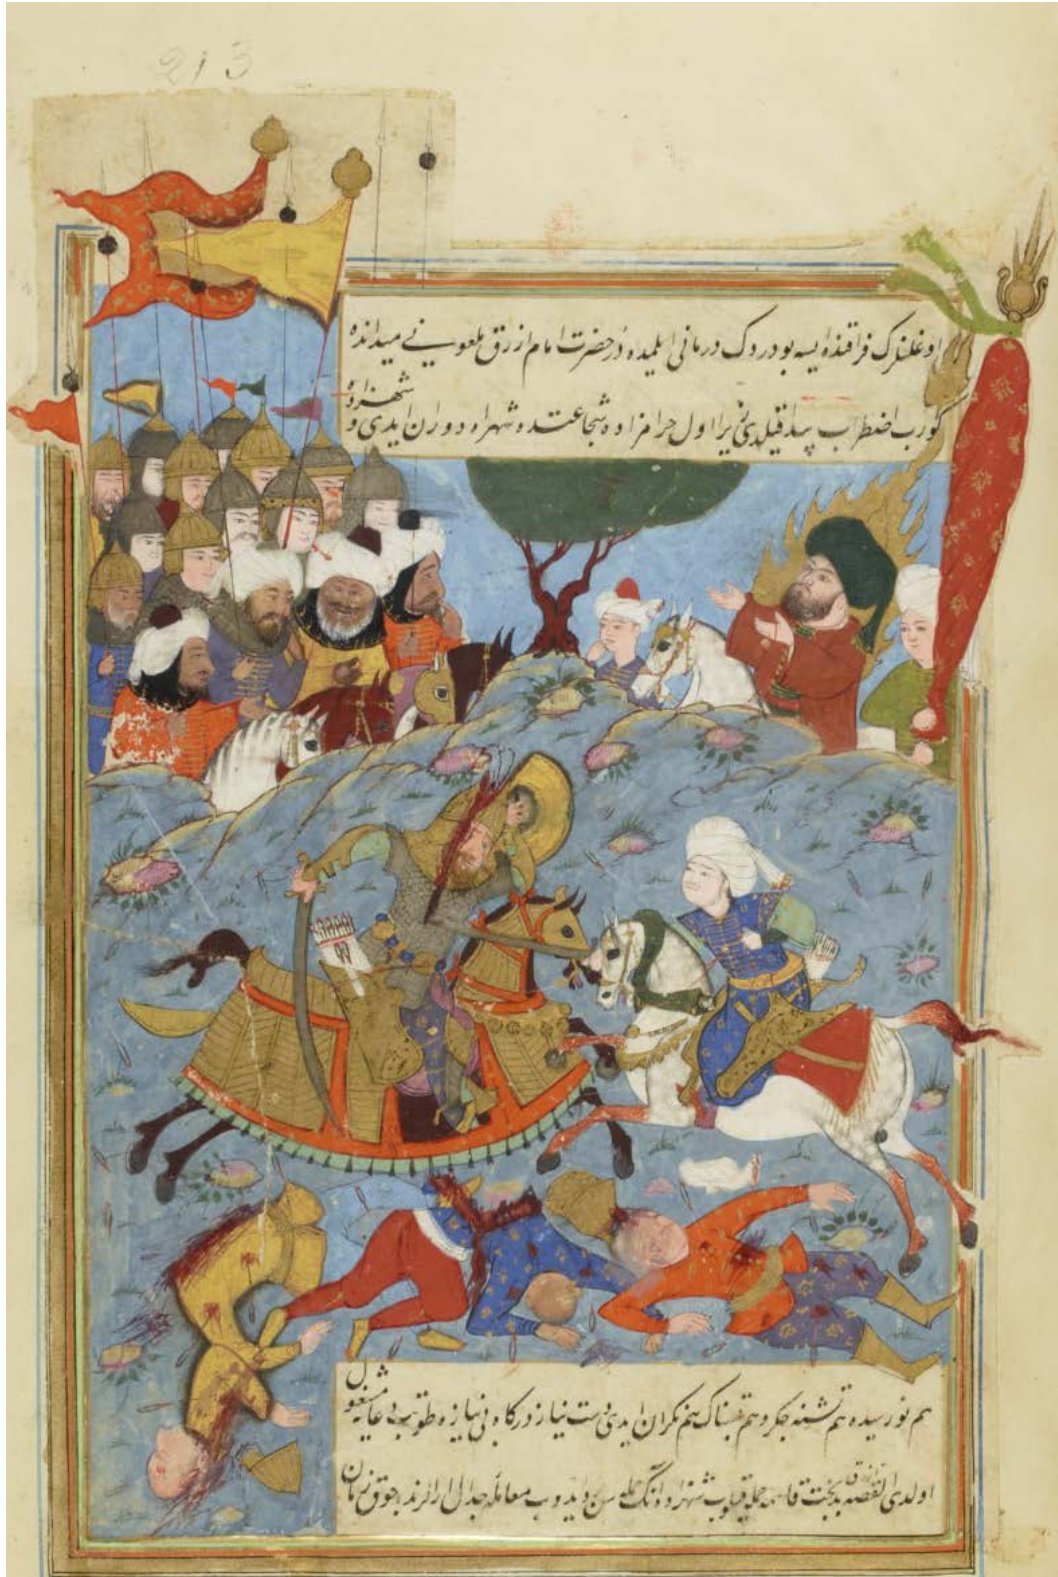 213
اوغلنڭ فراقنده ایسه بو دردڭ درمانی ایلمیده در حضرت امام ازرق ملعونی میدانده
کورب اضطراب پیدا قیلدی زیرا اول حرامزاده شجاعتده شهره دوران ایدی و شهزاده
هم نورسیده هم تشنه جکر و هم غمناک هم نکران ایدی دست نیاز درکاه بی نیازه طوتوب دعایه مشغول
اولدی القصه ازرق بدبخت قاسمه حمله قیلوب شهزاده انڭ حمله سن رد ایدوب معامله جدال ارالرنده چوق زمان